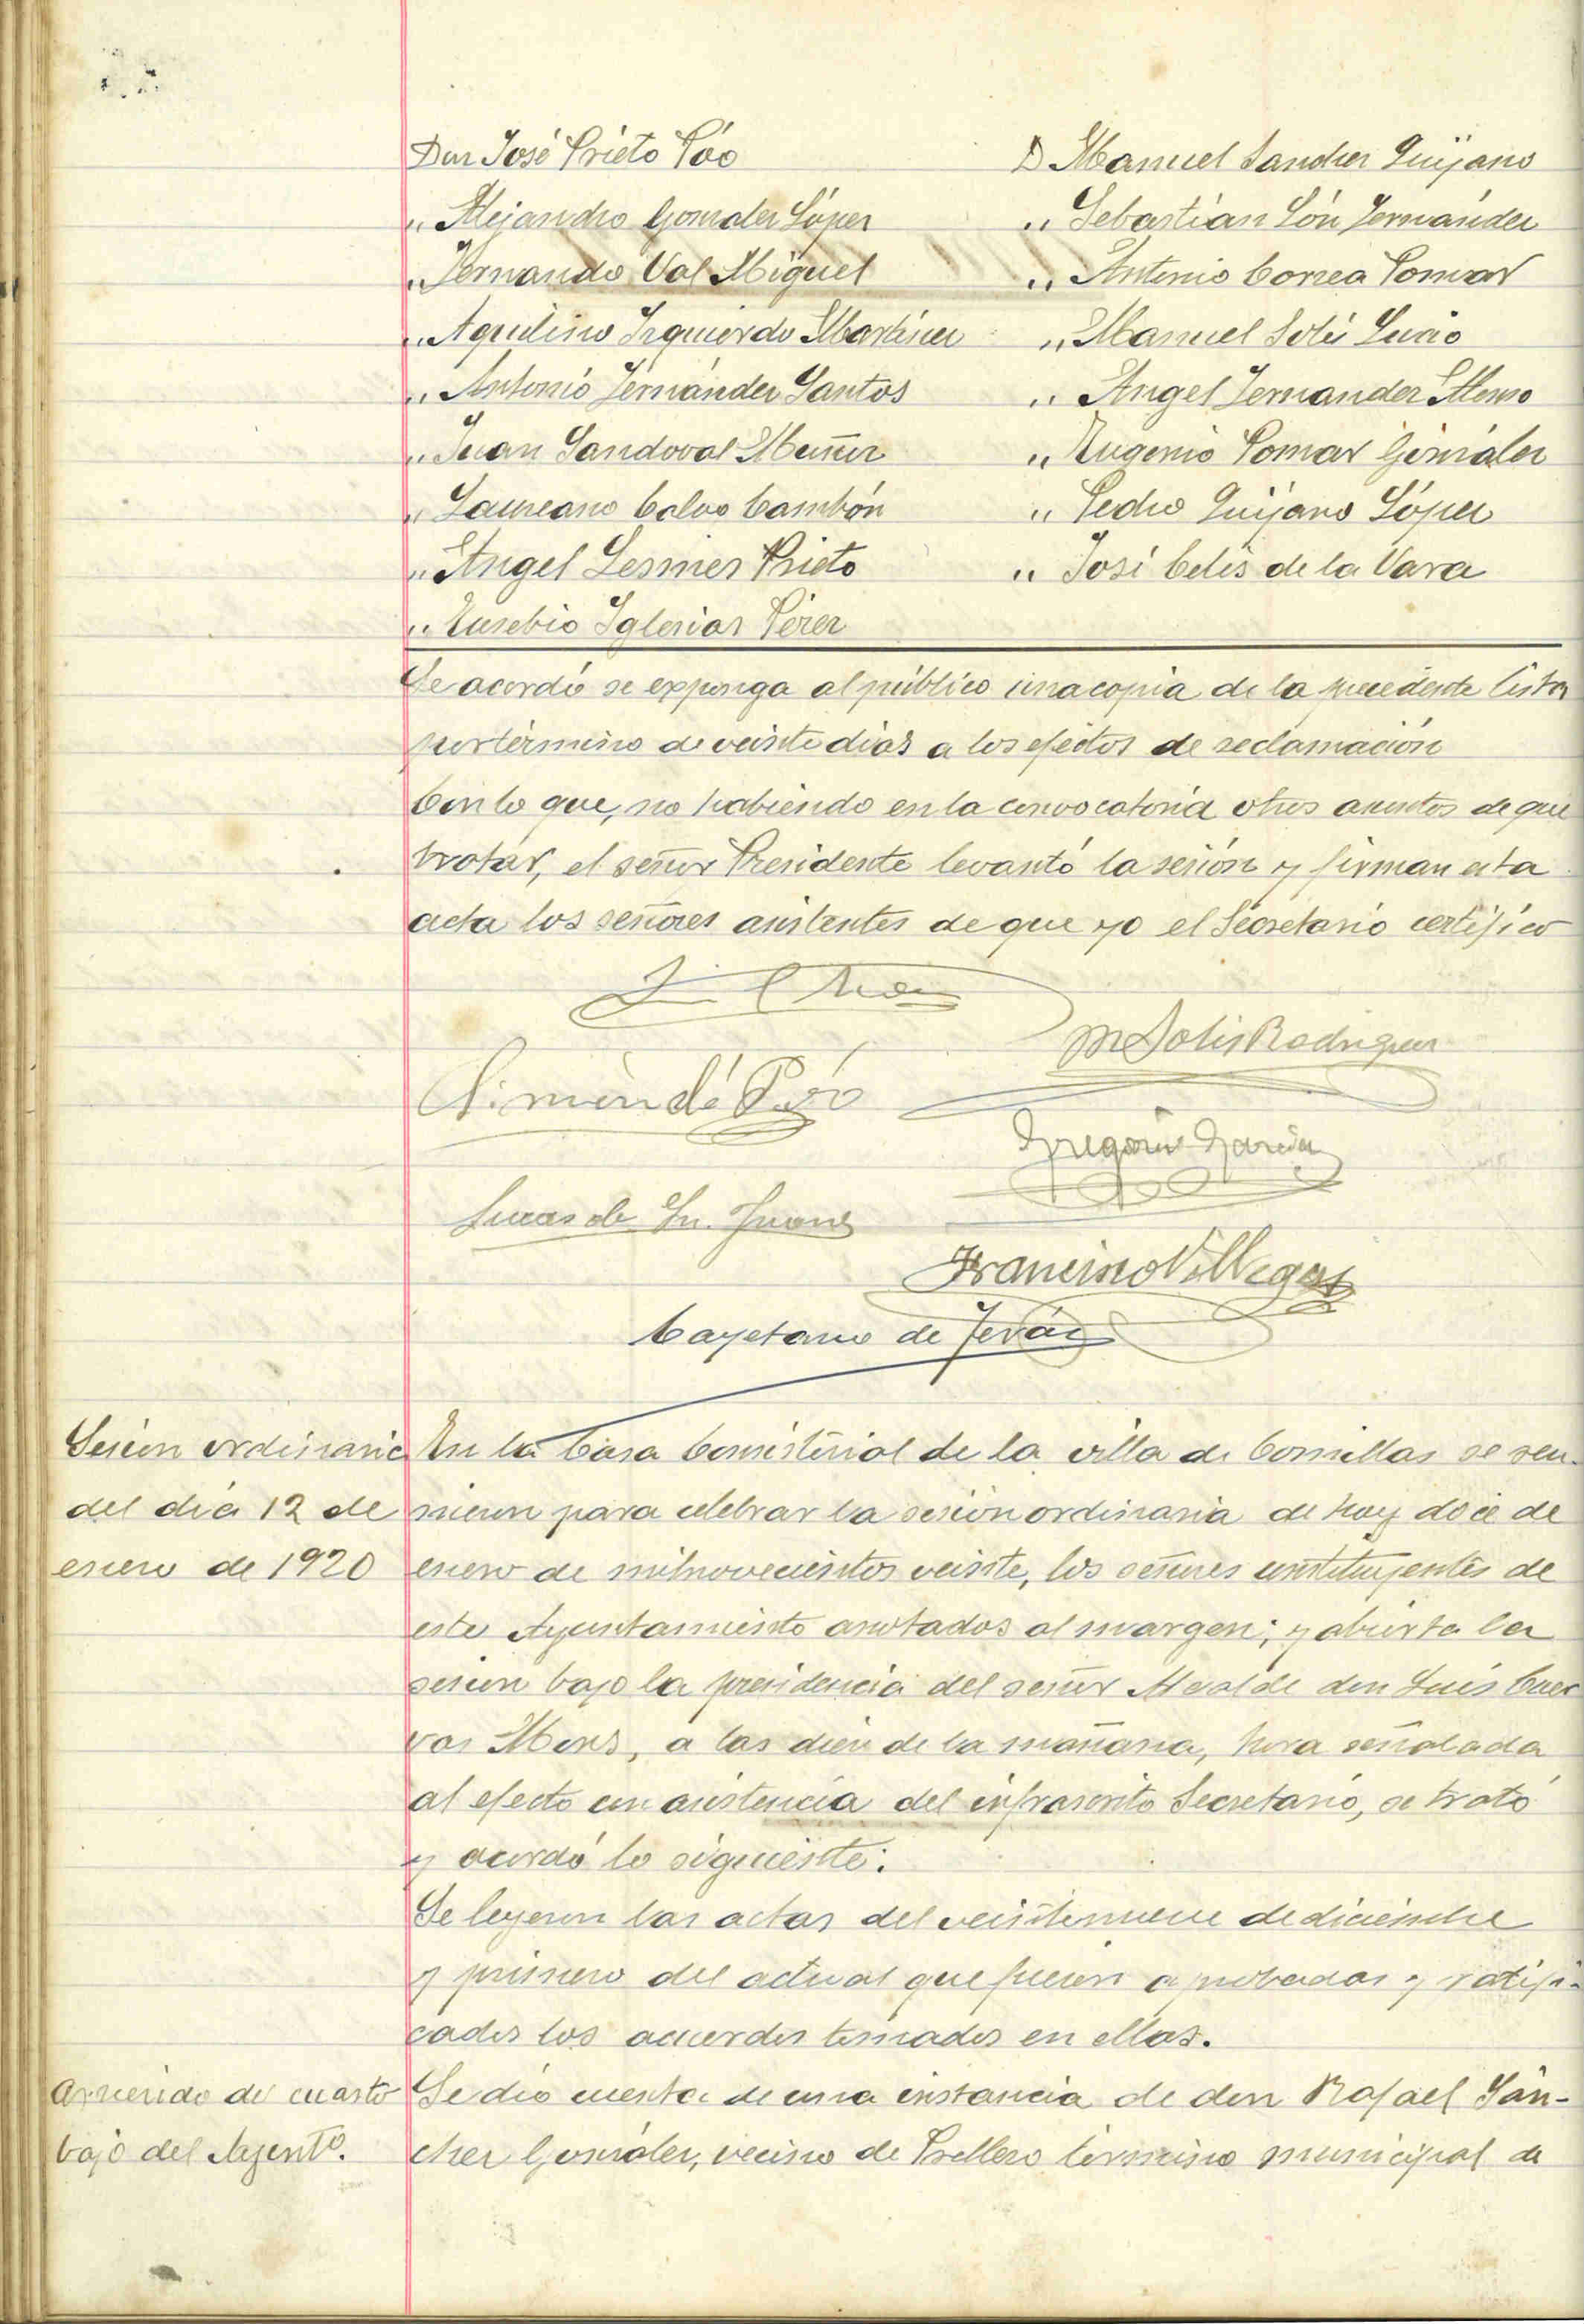 Don José Prieto Póo
D Manuel Sanchez Quijano
„ Alejandro Gonzalez López
„ Sebastián Són Fernández
„ Fernando Val Miguel
„ Antonio Correa Pomar
„ Aquilino Izquierdo Martinez
„ Manuel Solis Lucio
„ Antonio Fernández Santos
„ Angel Fernandez Alonso
„ Juan Sandoval Muñiz
„ Eugenio Pomar González
„ Laureano Calvo Cambón
„ Pedro Quijano López
„ Angel Lesmes Prieto
„ José Celis de la Vara
„ Eusebio Iglesias Pérez
Se acordó se exponga al público una copia de la precedente lista
por término de veinte dias a los efectos de reclamación
Con lo que, no habiendo en la convocatoria otros asuntos de que
tratar, el señor Presidente levantó la sesión y firman esta
acta los señores asistentes de que yo el Secretario certifico
M Solis Rodriguez
Gregorio Garcia
Lucas de Sn. Juan
Francisco Villegas
Cayetano de Terán
Sesión ordinaria
del dia 12 de
enero de 1920
En la Casa Consistorial de la villa de Comillas se reu-
nieron para celebrar la sesión ordinaria de hoy doce de
enero de mil novecientos veinte, los señores constituyentes de
este Ayuntamiento anotados al margen; y abierta la
sesion bajo la presidencia del señor Alcalde don Luis Cuer
vas Mons, a las diez de la mañana, hora señalada
al efecto con asistencia del infrascrito Secretario, se trató
y acordó lo siguiente:
Se leyeron las actas del veintinueve de diciembre
y primero del actual que fueron aprobadas y ratifi-
cados los acuerdos tomados en ellas.
Arriendo de cuarto
bajo del Ayentº.
Se dió cuenta de una instancia de don Rafael Sán-
chez González, vecino de Prellezo término municipal de